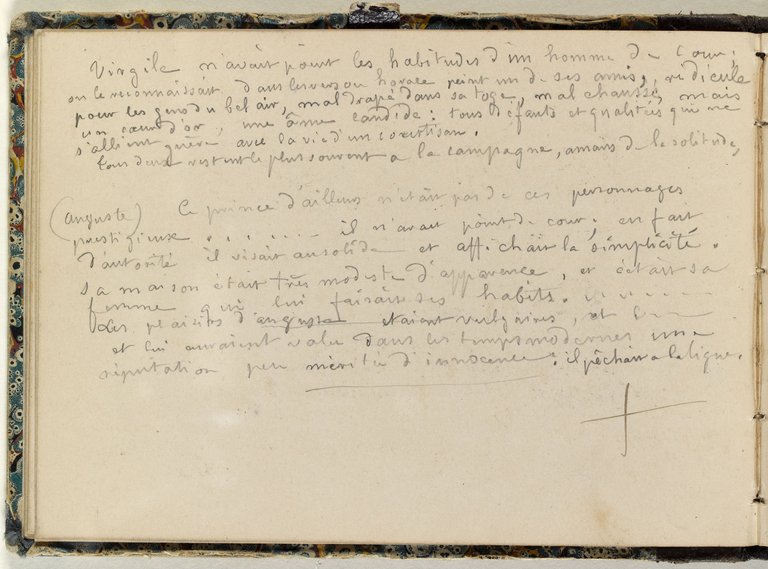 Virgile n'avait point les habitudes d'un homme de cour;
on le reconnaissait dans les vers ou horace peint un de ses amis, ridicule
pour les gens du bel air, mal drapé dans sa toge, mal chaussé, mais
un cœur d'or, une âme candide: tous défauts et qualités qui ne
s'allient guère avec la vie d'un courtisan.
tous deux restent le plus souvent a la campagne, amants de la solitude,
(auguste) Ce prince d'ailleurs n'était pas de ces personnages
prestigieux ....... il n'avait point de cour; en fait
d'autorité il visait au solide et affichait la simplicité.
sa maison était très modeste d'apparence, et c'était sa
femme qui lui faisait ses habits. .......
Les plaisirs d'auguste étaient vulgaires, et
et lui auraient valu dans les temps modernes une
réputation peu méritée d'innocence: il pêchait a la ligne.